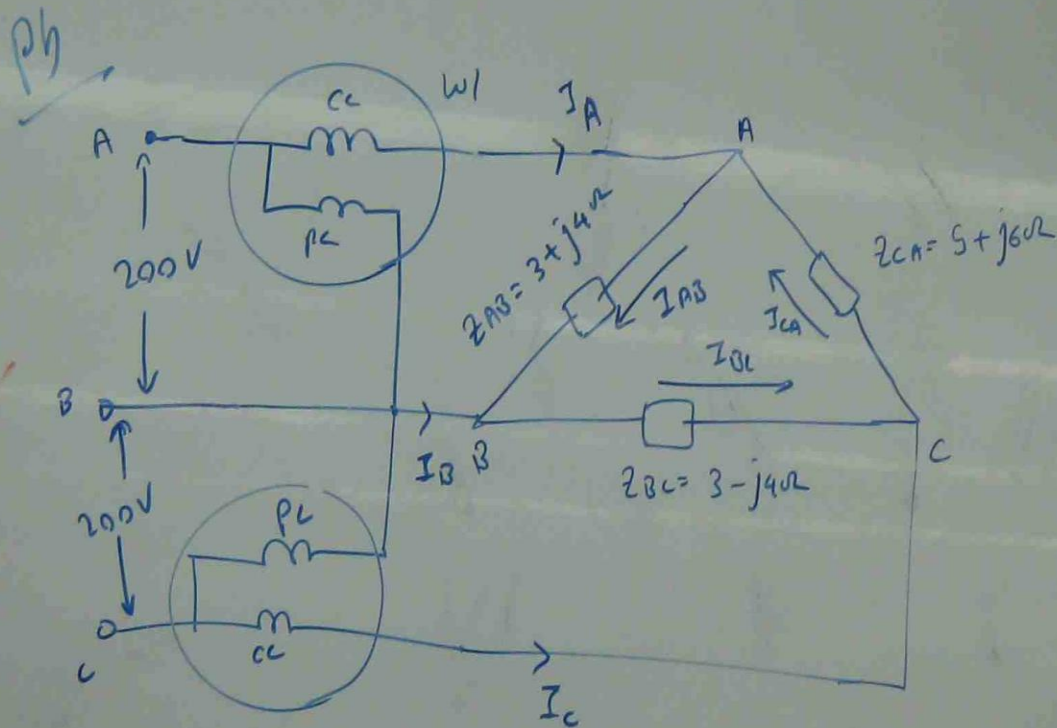 Ph
A
CC
PC
W1
I_A
A
200V
Z_AB = 3 + j4Ω
I_AB
Z_CA = 5 + j6Ω
I_CA
I_BC
B
I_B
B
Z_BC = 3 - j4Ω
C
200V
PC
CC
C
I_C